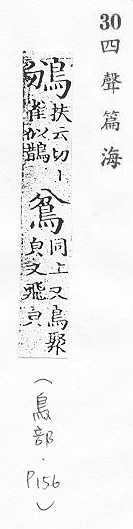 30 四聲篇海
鳻 扶云切丨雀似鵲 同上又鳥聚皃又飛皃
(鳥部·P156)